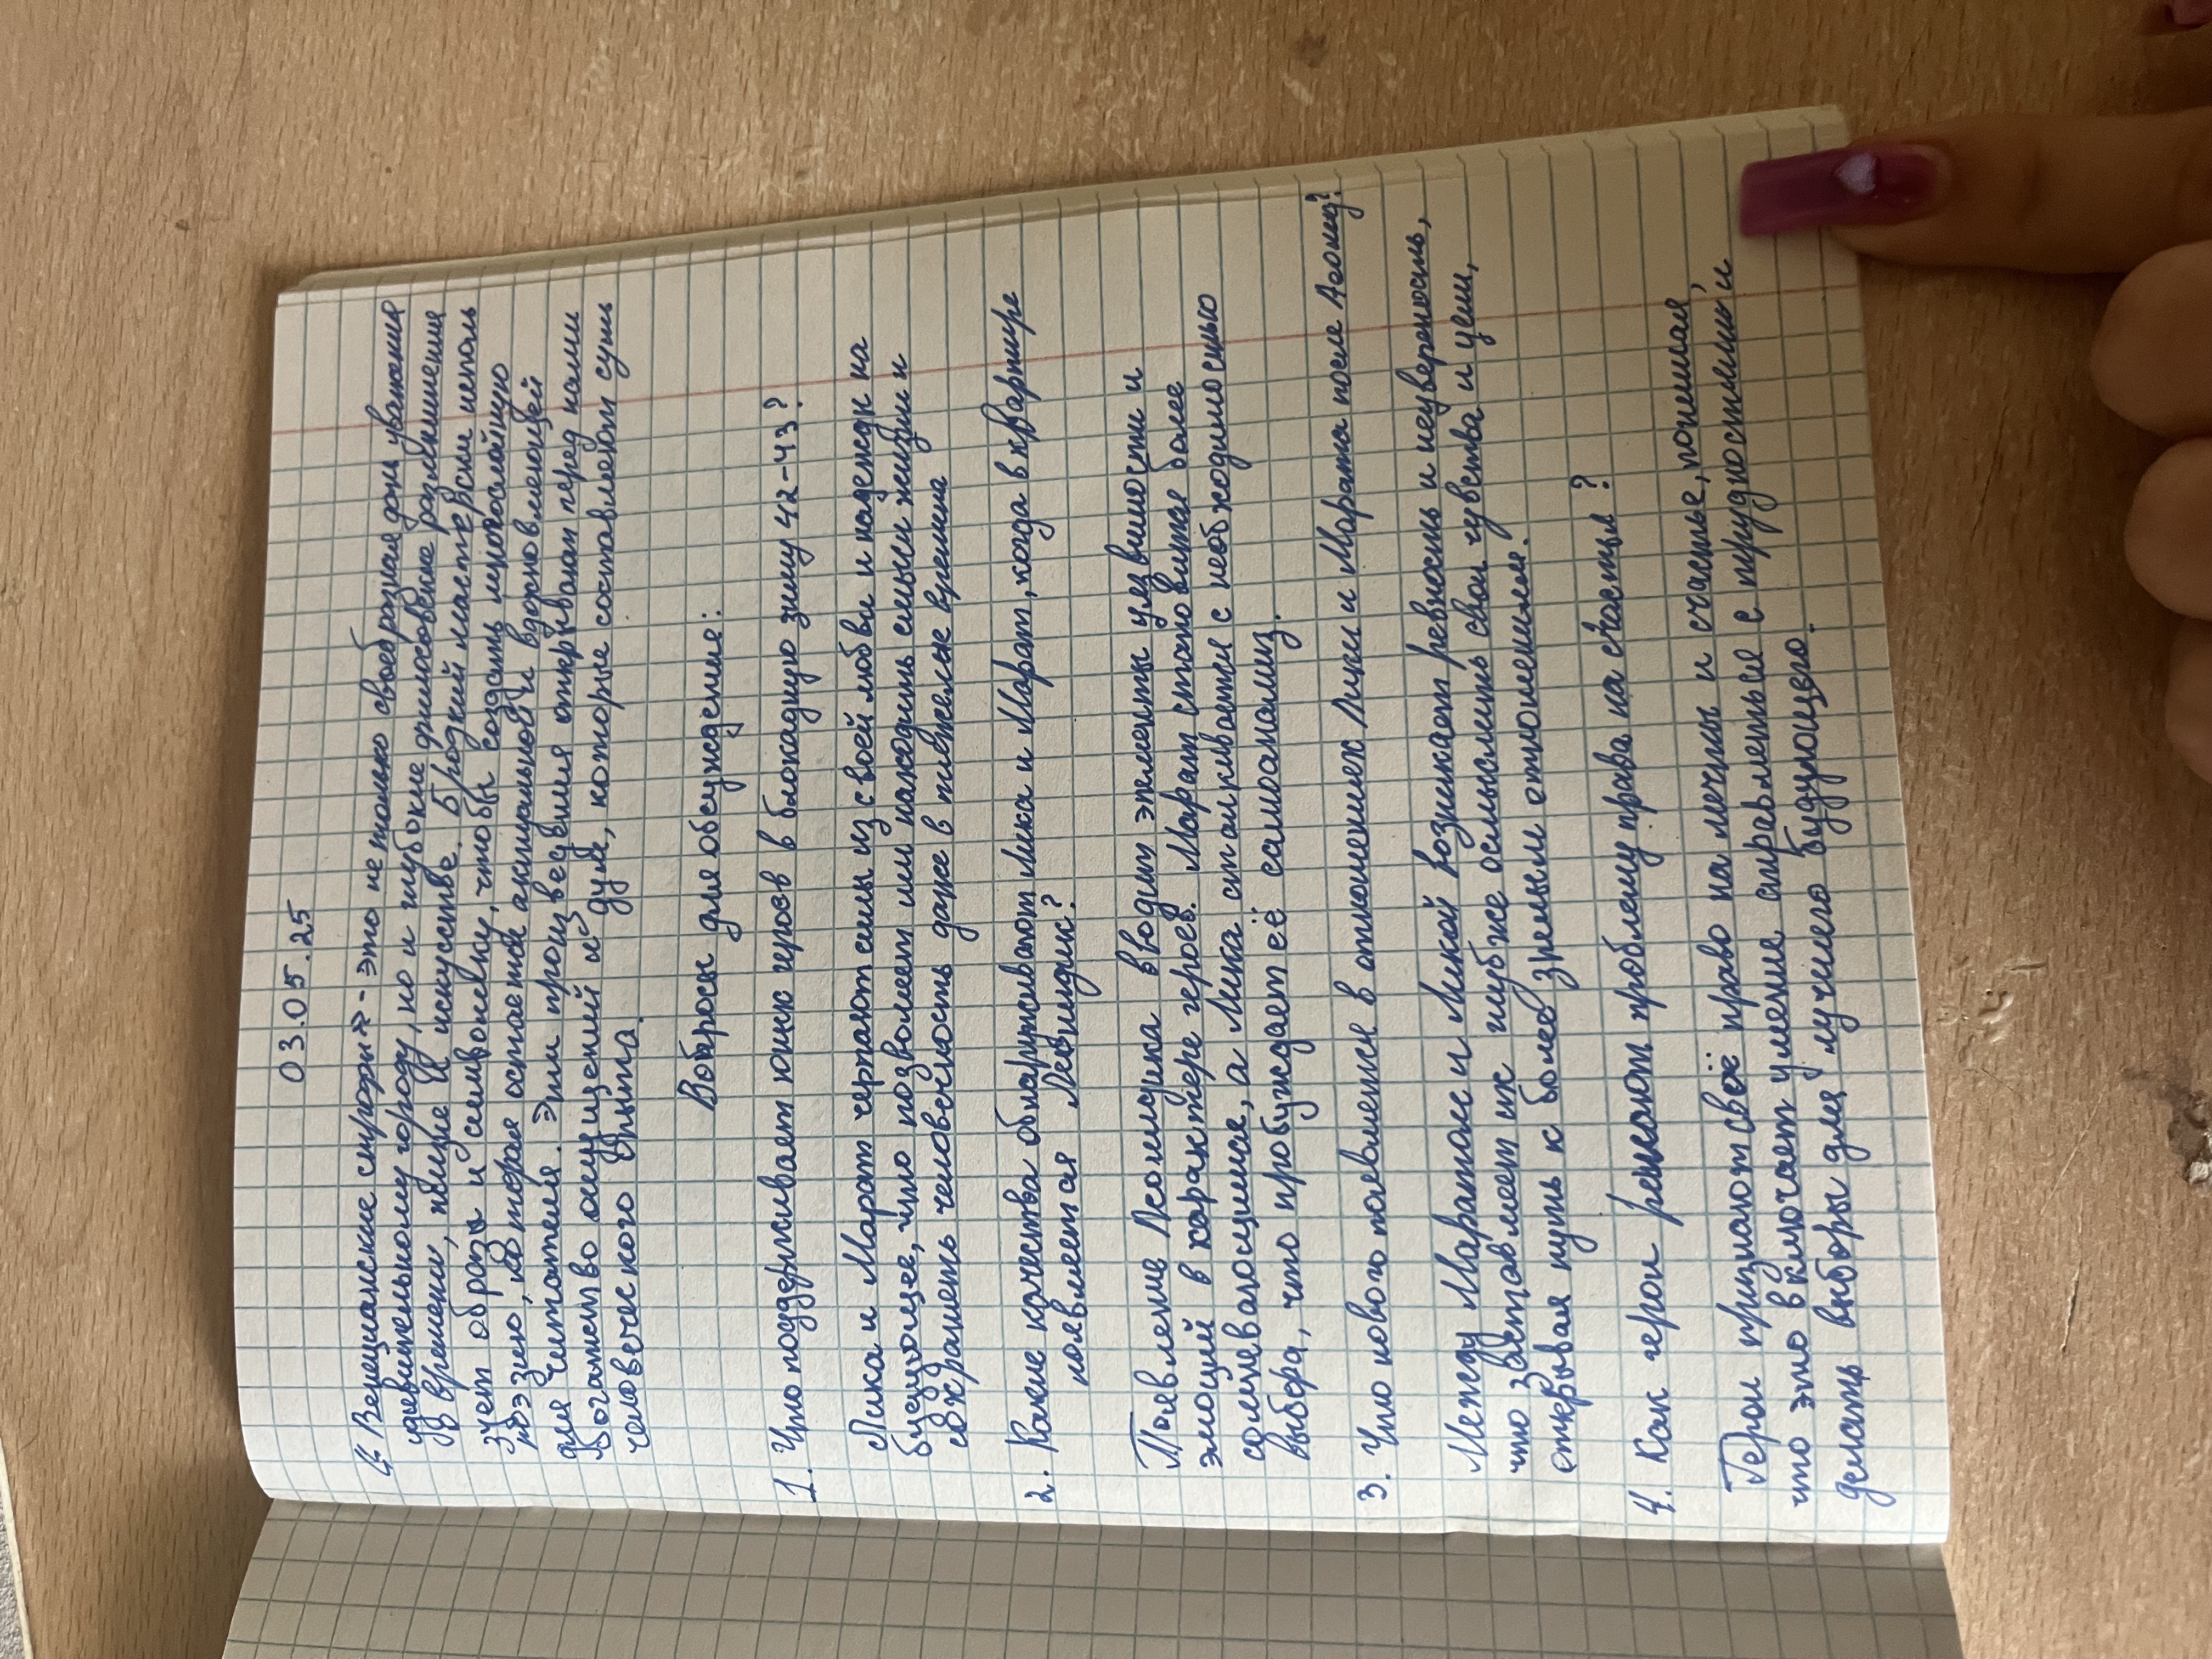 03.05.25
4." Венецианские строфы" - это не только своеобразная дань уважения
удивительному городу, но и глубокие философские размышления
о времени, жизни и искусстве. Бродский мастерски исполь
зует образы и символику, чтобы создать многослойную
поэзию, которая остается актуальной и вдохновляющей
для читателя. Эти произведения открывают перед нами
богатство ощущений и дум, которые составляют суть
человеческого бытия.
Вопросы для обсуждения:
1. Что поддерживает юных героев в блокадную зиму 42-43?
Лика и Марат черпают силы из своей любви и надежд на
будущее, что позволяет им находить смысл жизни и
сохранять человечность даже в тяжелые времена
2. Какие качества обнаруживают Лика и Марат, когда в квартире
появляется Леонидик?
Появление Леонидика вводит элементы уязвимости и
эмоций в характере героев. Марат становится более
сомневающимся, а Лика сталкивается с необходимостью
выбора, что пробуждает её самоанализ.
3. Что нового появляется в отношениях Лики и Марата после
Между Маратом и Ликой возникает ревность и неуверенность,
что заставляет их глубже осмыслить свои чувства и цели,
открывая путь к более зрелым отношениям.
4. Как герои решают проблему права на счастье?
Герои признают своё право на мечты и счастье, понимая,
что это включает умение справляться с трудностями и
делать выборы для лучшего будущего.